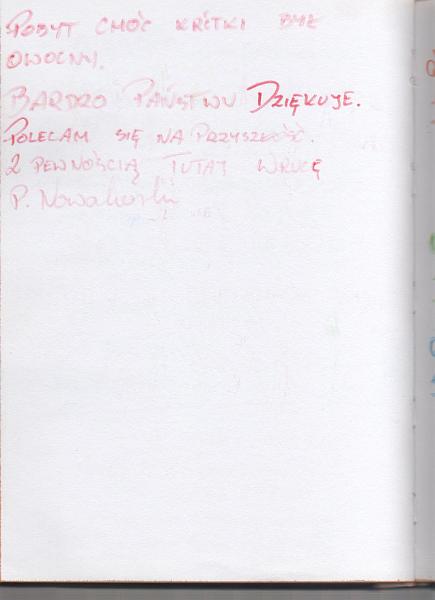 POBYT CHOĆ KRÓTKI BYŁ
OWOCNY.
BARDZO PAŃSTWU DZIĘKUJE.
POLECAM SIĘ NA PRZYSZŁOŚĆ.
Z PEWNOŚCIĄ TUTAJ WRÓCĘ
P. Nowakowski